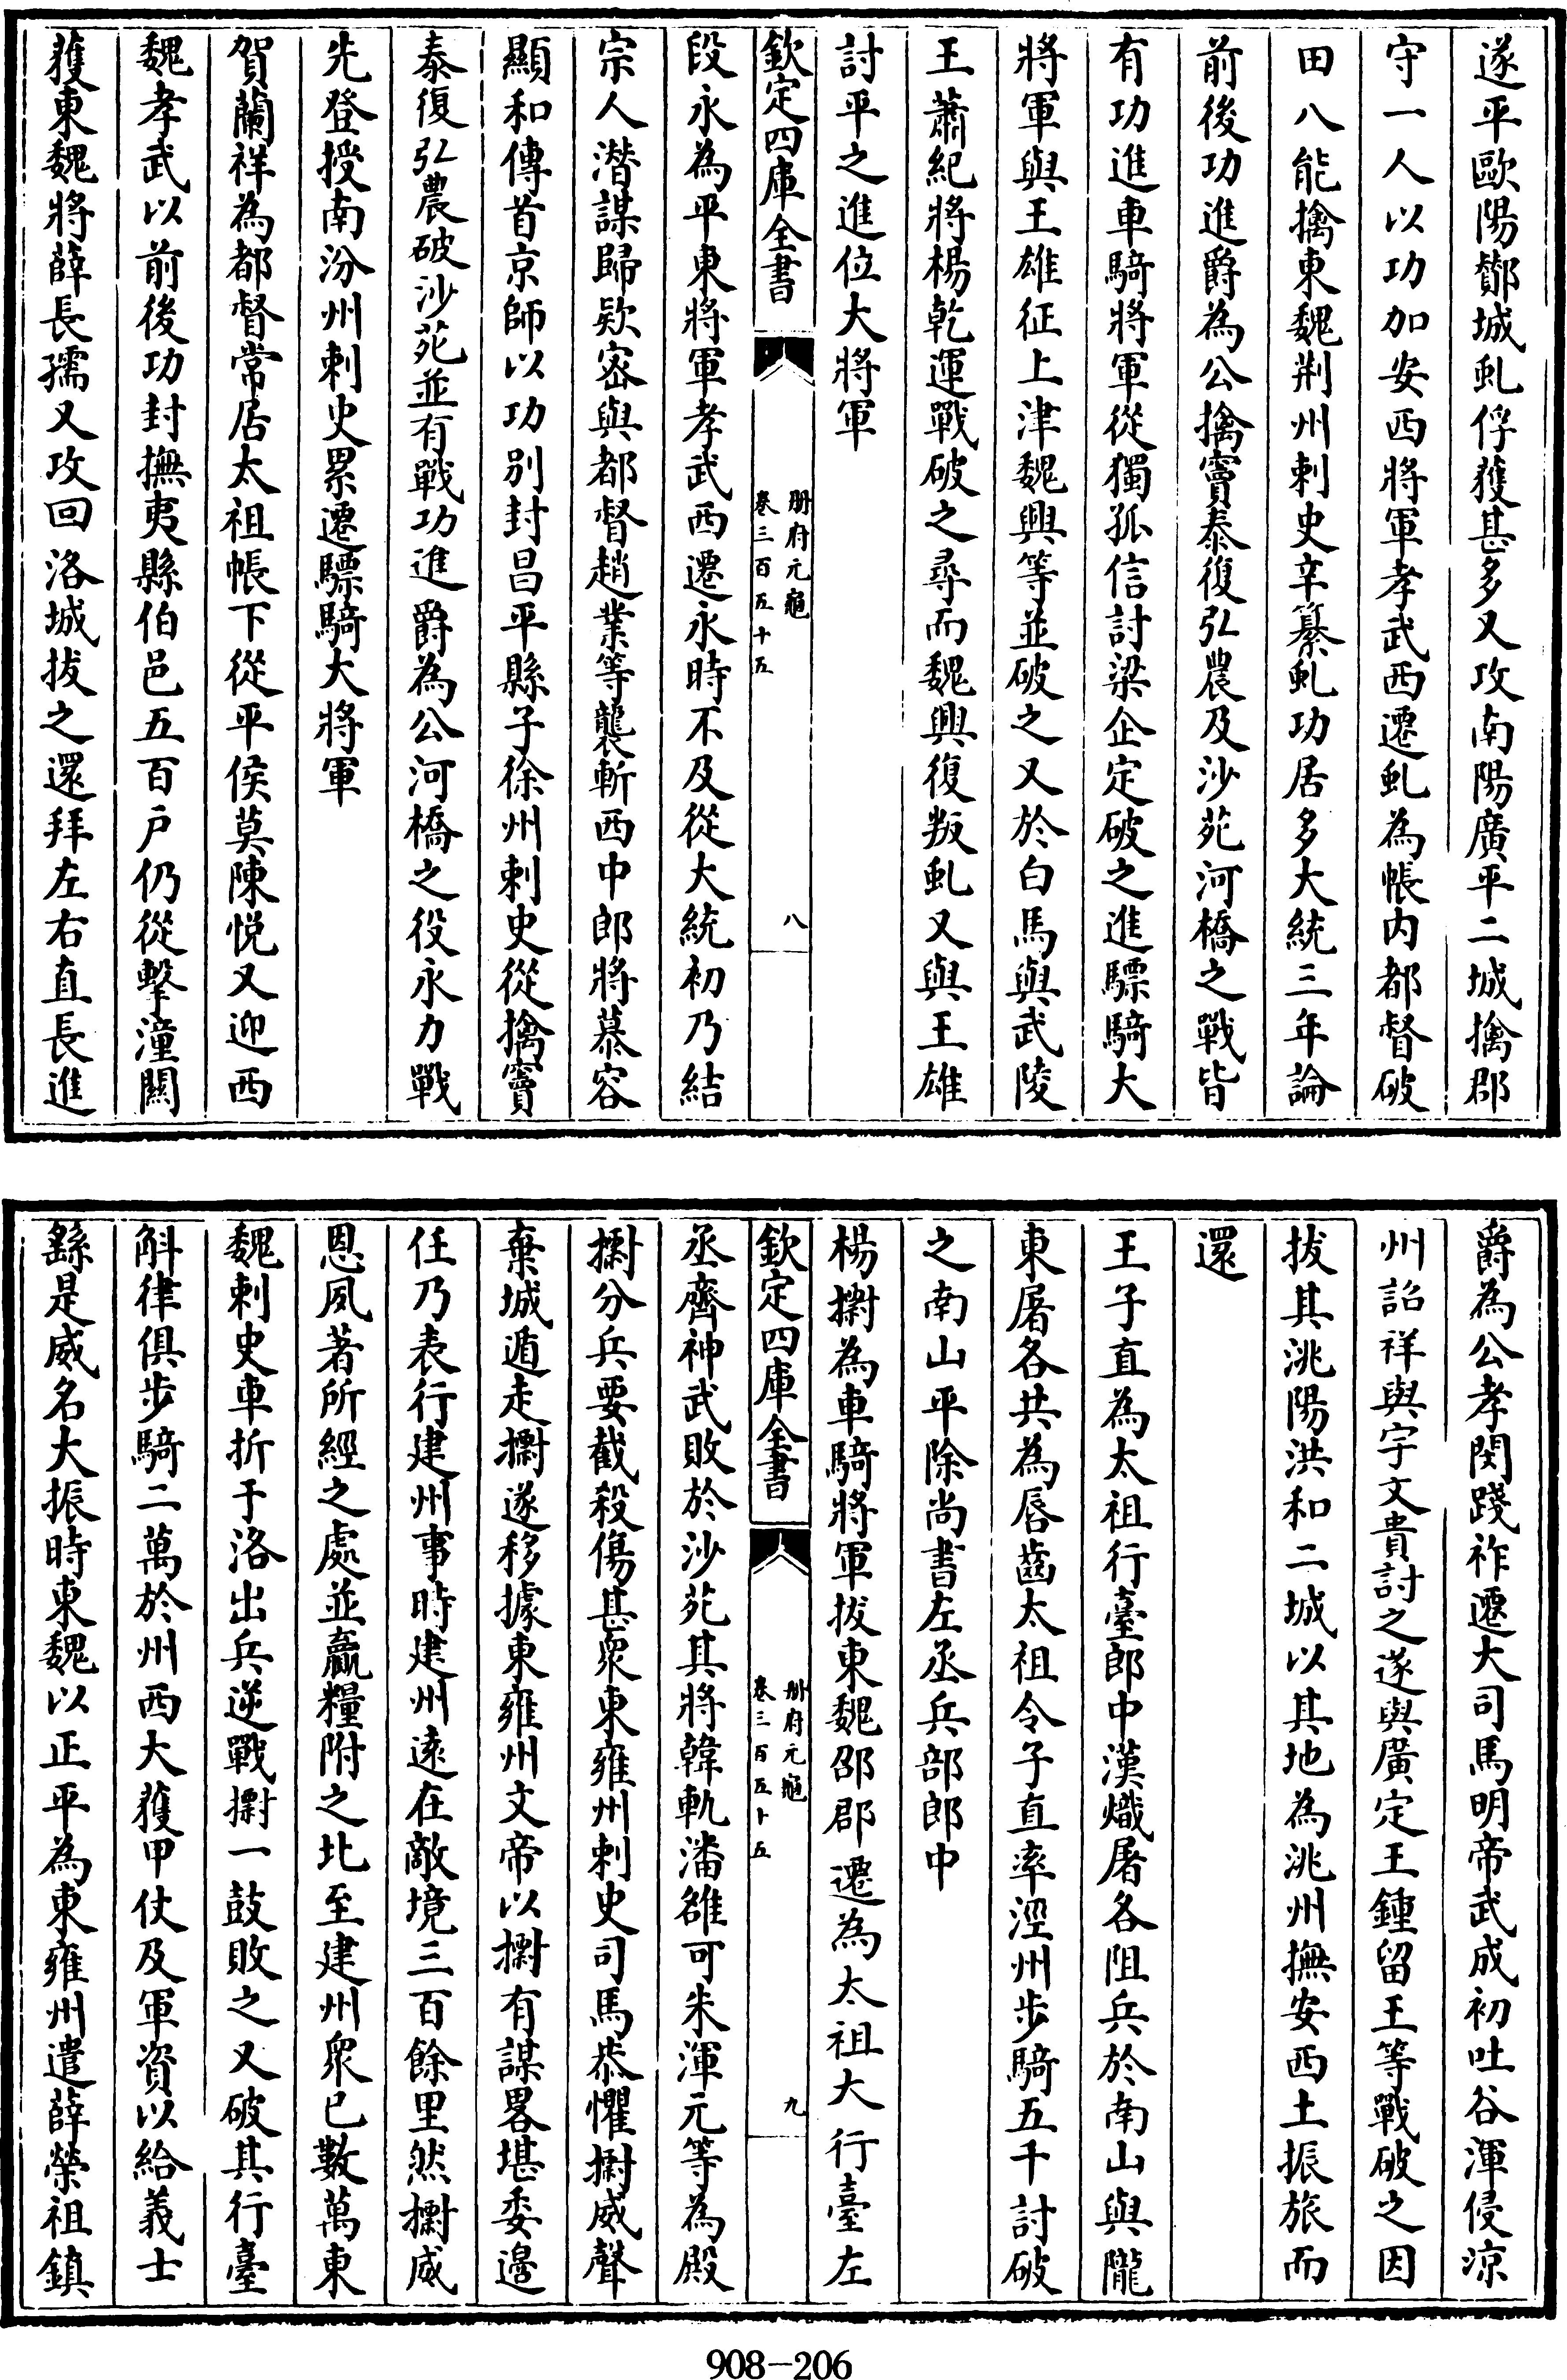 遂平歐陽酇城虬俘獲甚多又攻南陽廣平二城擒郡
守一人以功加安西將軍孝武西遷虬為帳内都督破
田八能擒東魏荆州刺史辛纂虬功居多大統三年論
前後功進爵為公擒竇泰復弘農及沙苑河橋之戰皆
有功進車騎將軍從獨孤信討梁企定破之進驃騎大
將軍與王雄征上津魏興等並破之又於白馬與武陵
王蕭紀將楊乾運戰破之尋而魏興復叛虬又與王雄
討平之進位大將軍
欽定四庫全書
册府元龜
卷三百五十五
八
段永為平東將軍孝武西遷永時不及從大統初乃結
宗人潛謀歸欵密與都督趙業等襲斬西中郎將慕容
顯和傳首京師以功别封昌平縣子徐州刺史從擒竇
泰復弘農破沙苑並有戰功進爵為公河橋之役永力戰
先登授南汾州刺史累遷驃騎大將軍
賀蘭祥為都督常居太祖帳下從平侯莫陳悦又迎西
魏孝武以前後功封撫夷縣伯邑五百户仍從擊潼關
獲東魏將薛長孺又攻回洛城拔之還拜左右直長進
爵為公孝閔踐祚遷大司馬明帝武成初吐谷渾侵涼
州詔祥與宇文貴討之遂與廣定王鍾留王等戰破之因
拔其洮陽洪和二城以其地為洮州撫安西土振旅而
還
王子直為太祖行臺郎中漢熾屠各阻兵於南山與隴
東屠各共為唇齒太祖令子直率涇州步騎五千討破
之南山平除尚書左丞兵部郎中
楊㯹為車騎將軍拔東魏邵郡遷為太祖大行臺左
欽定四庫全書
册府元龜
卷三百五十五
九
丞齊神武敗於沙苑其將韓軌潘雒可朱渾元等為殿
㯹分兵要截殺傷甚衆東雍州刺史司馬恭懼㯹威聲
棄城遁走㯹遂移據東雍州文帝以㯹有謀畧堪委邉
任乃表行建州事時建州逺在敵境三百餘里然㯹威
恩夙著所經之處並贏糧附之北至建州衆已數萬東
魏刺史車折于洛出兵逆戰㯹一鼓敗之又破其行臺
斛律俱步騎二萬於州西大獲甲仗及軍資以給義士
繇是威名大振時東魏以正平為東雍州遣薛榮祖鎮
908-206